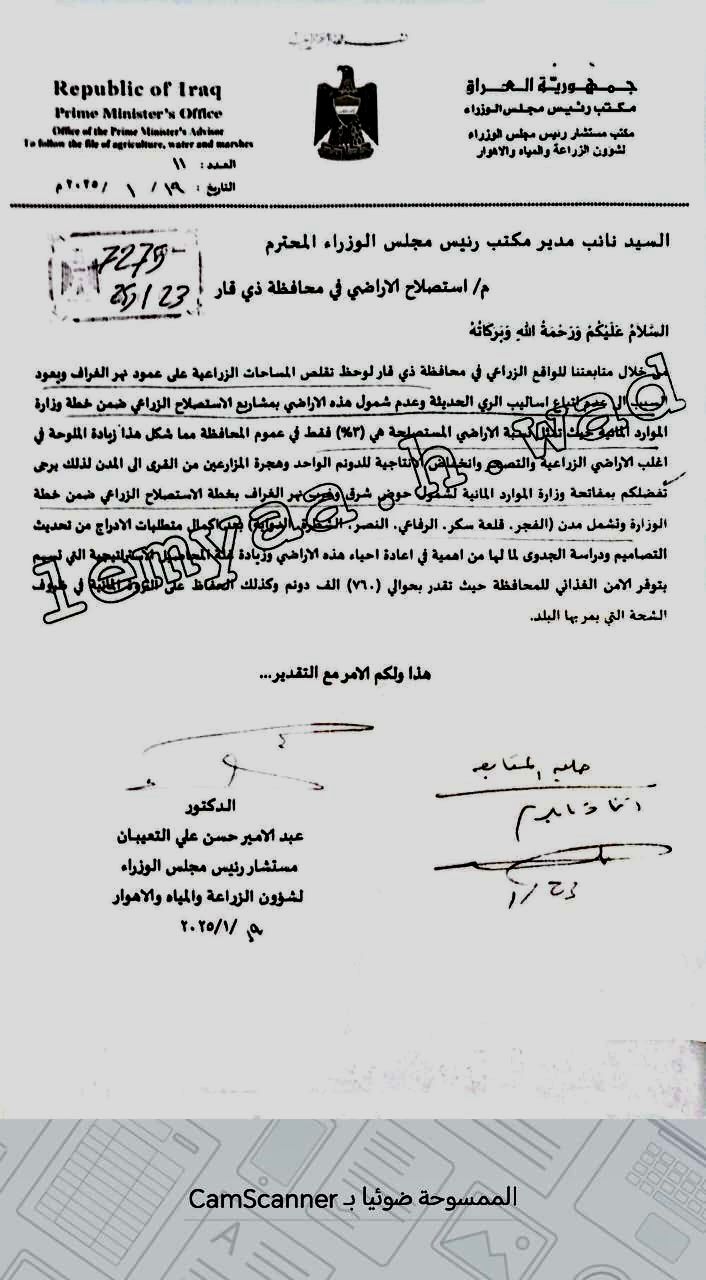 Republic of Iraq
Prime Minister's Office
Office of the Prime Minister's Advisor
To follow the file of agriculture, water and marshes
جمهورية العراق
مكتب رئيس مجلس الوزراء
مكتب مستشار رئيس مجلس الوزراء
لشؤون الزراعة والمياه والاهوار
العدد : ١١
التاريخ : ١٩ / ١ / ٢٠٢٥م
السيد نائب مدير مكتب رئيس مجلس الوزراء المحترم
7275
25/1/23
م/ استصلاح الاراضي في محافظة ذي قار
السَّلامُ عَلَيْكُمْ وَرَحْمَةُ اللهِ وَبَرَكاتُهُ
من خلال متابعتنا للواقع الزراعي في محافظة ذي قار لوحظ تقلص المساحات الزراعية على عمود نهر الغراف ويعود
السبب الى عدم اتباع اساليب الري الحديثة وعدم شمول هذه الاراضي بمشاريع الاستصلاح الزراعي ضمن خطة وزارة
الموارد المائية حيث نسبة الاراضي المستصلحة هي (٣%) فقط في عموم المحافظة مما شكل هذا زيادة الملوحة في
اغلب الاراضي الزراعية والتصحر وانخفاض الانتاجية للدونم الواحد وهجرة المزارعين من القرى الى المدن لذلك يرجى
تفضلكم بمفاتحة وزارة الموارد المائية لشمول حوض شرق وغرب نهر الغراف بخطة الاستصلاح الزراعي ضمن خطة
الوزارة وتشمل مدن (الفجر. قلعة سكر. الرفاعي. النصر. الشطرة. الدواية) بعد اكمال متطلبات الادراج من تحديث
التصاميم ودراسة الجدوى لما لها من اهمية في اعادة احياء هذه الاراضي وزيادة غلة المحاصيل الاستراتيجية التي تسهم
بتوفر الامن الغذائي للمحافظة حيث تقدر بحوالي (٧٦٠) الف دونم وكذلك الحفاظ على الثروة المائية في ظروف
الشحة التي يمر بها البلد.
lemyaa.h.wad
هذا ولكم الامر مع التقدير...
الدكتور
عبد الامير حسن علي التعيبان
مستشار رئيس مجلس الوزراء
لشؤون الزراعة والمياه والاهوار
١٩/ ٢٠٢٥/١
1/23
الممسوحة ضوئيا بـ CamScanner